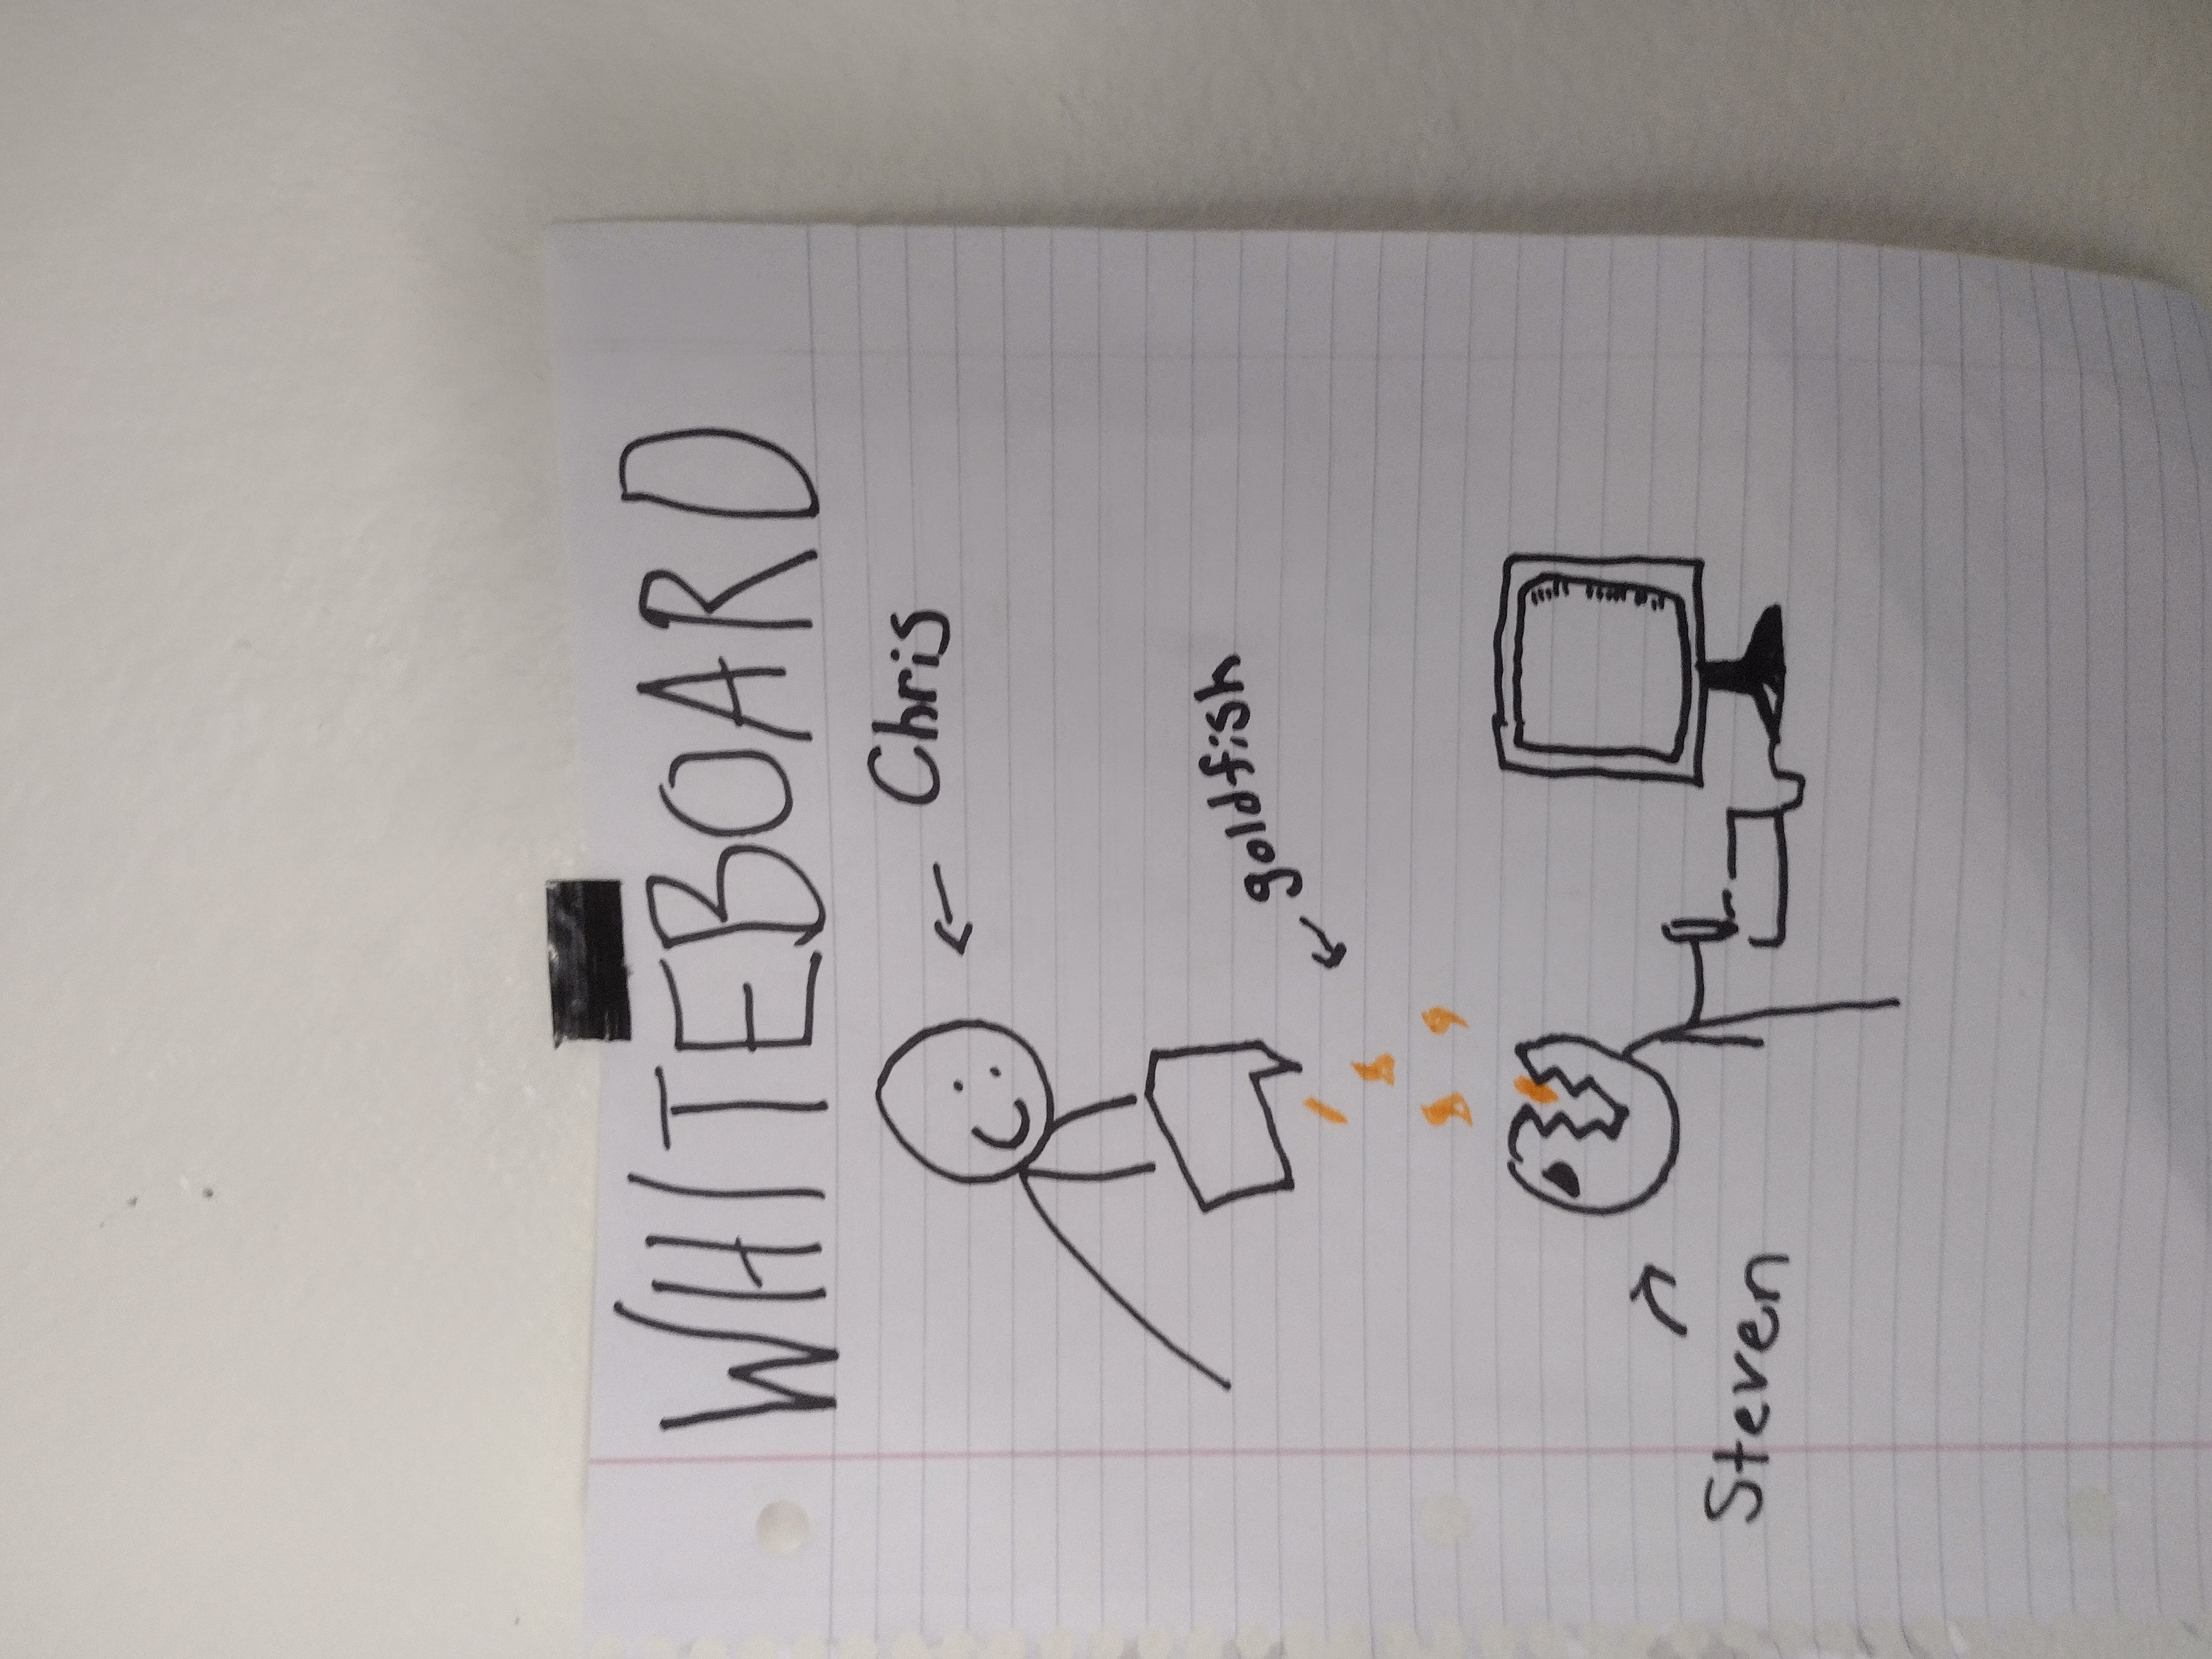 WHITEBOARD
Chris
goldfish
Steven